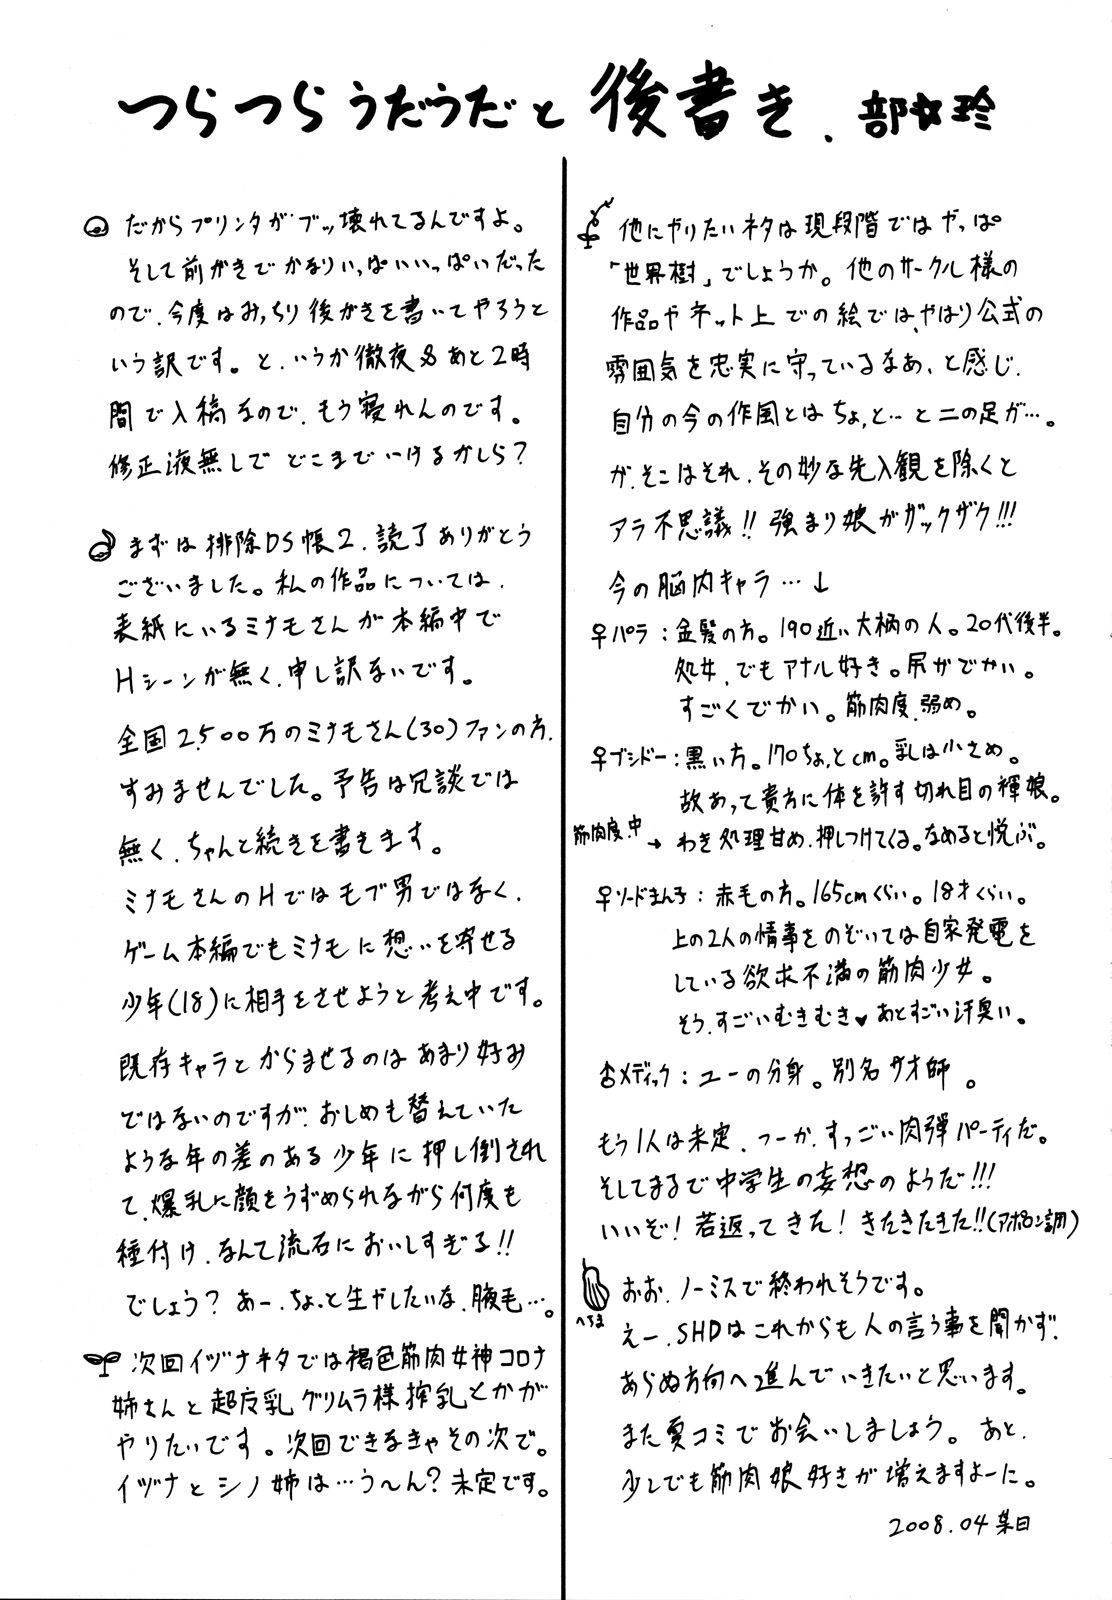 つらつらうだうだと後書き. 部☆玲
だからプリンタがブッ壊れてるんですよ。
そして前がきでかなりいっぱいいっぱいだった
ので、今度はみっちり後がきを書いてやろうと
いう訳です。と、いうか徹夜&あと2時
間で入稿なので、もう寝れんのです。
修正液無しでどこまでいけるかしら?
まずは排除DS帳2、読了ありがとう
ございました。私の作品については、
表紙にいるミナモさんが本編中で
Hシーンが無く、申し訳ないです。
全国2,500万のミナモさん(30)ファンの方、
すみませんでした。予告は冗談では
無く、ちゃんと続きを書きます。
ミナモさんのHではモブ男ではなく、
ゲーム本編でもミナモに想いを寄せる
少年(18)に相手をさせようと考え中です。
既存キャラとからませるのはあまり好み
ではないのですが、おしめも替えていた
ような年の差のある少年に押し倒され
て、爆乳に顔をうずめられながら何度も
種付け、なんて流石においしすぎる!!
でしょう? あー、ちょっと生やしたいな、腋毛…。
次回イヅナネタでは褐色筋肉女神コロナ
姉さんと超反乳グリムラ様搾乳とかが
やりたいです。次回できなきゃその次で。
イヅナとシノ姉は…う〜ん?未定です。
他にやりたいネタは現段階ではやっぱ
「世界樹」でしょうか。他のサークル様の
作品やネット上での絵では、やはり公式の
雰囲気を忠実に守っているなあ、と感じ、
自分の今の作風とはちょっと‥と二の足が…。
が、そこはそれ、その妙な先入観を除くと
アラ不思議!! 強まり娘がザックザク!!!
今の脳内キャラ…↓
♀パラ:金髪の方。190近い大柄の人。20代後半。
処女、でもアナル好き。尻がでかい。
すごくでかい。筋肉度、弱め。
♀ブシドー:黒い方。170ちょっとcm。乳は小さめ。
故あって貴方に体を許す切れ目の褌娘。
筋肉度、中→ わき処理甘め、押しつけてくる。なめると悦ぶ。
♀ソードまん子:赤毛の方。165cmくらい。18才くらい。
上の2人の情事をのぞいては自家発電を
している欲求不満の筋肉少女。
そう、すごいむきむき♥ あとすごい汗臭い。
♂メディック:ユーの分身。別名サオ師。
もう1人は未定、つーか、すっごい肉弾パーティだ。
そしてまるで中学生の妄想のようだ!!!
いいぞ! 若返ってきた! きたきたきた!!(アポロン調)
へちま
おお、ノーミスで終われそうです。
えー、SHDはこれからも人の言う事を聞かず、
あらぬ方向へ進んでいきたいと思います。
また夏コミでお会いしましょう。あと、
少しでも筋肉娘好きが増えますよーに。
2008.04某日